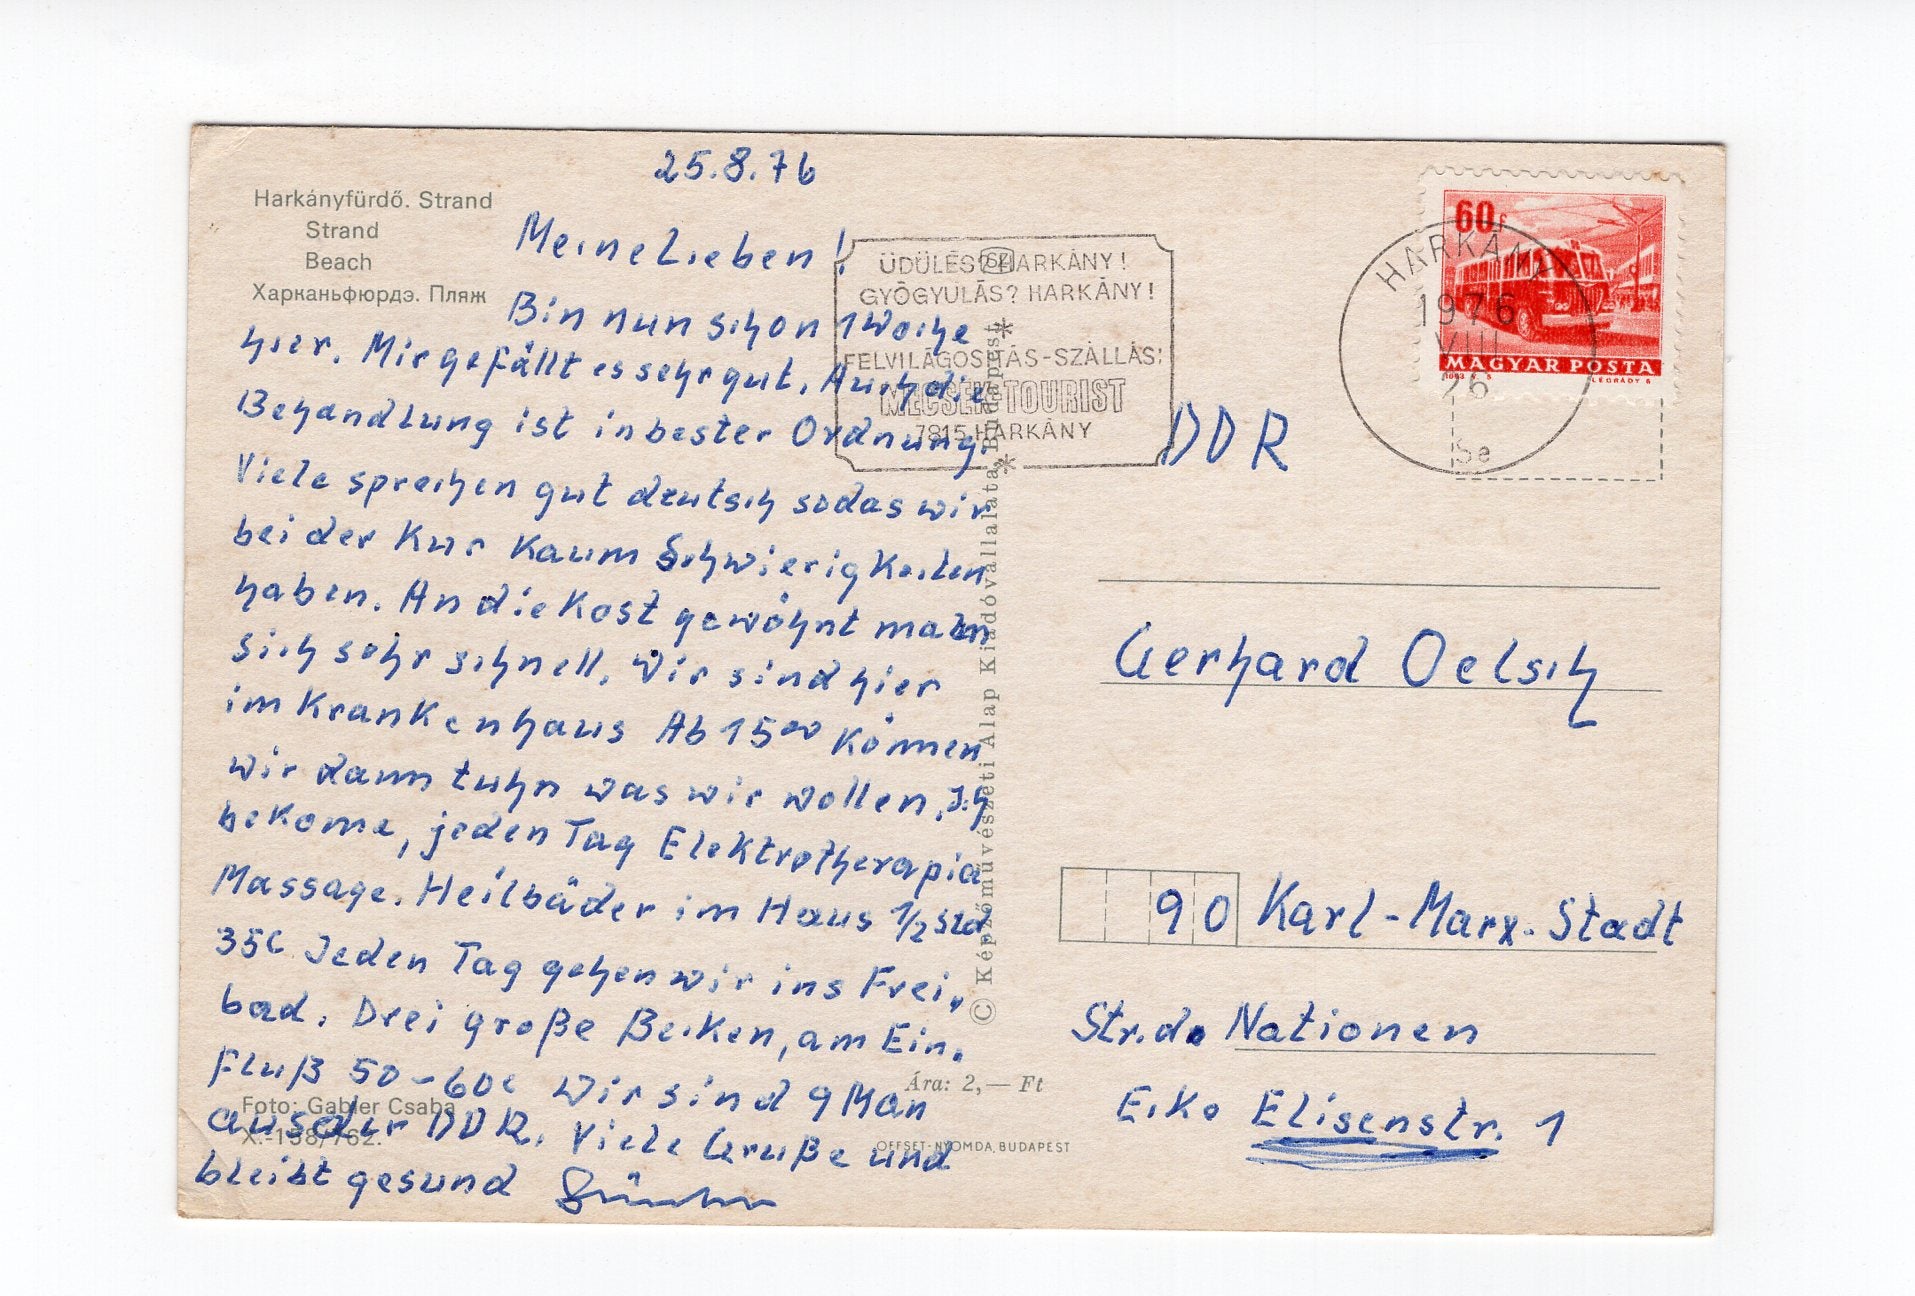 25.8.76
Harkányfürdő. Strand
Strand
Beach
Харканьфюрдэ. Пляж
Meine Lieben!
Bin nun schon 1 Woche
hier. Mir gefällt es sehr gut. Auch die
Behandlung ist in bester Ordnung.
Viele sprechen gut deutsch sodas wir
bei der Kur kaum Schwierigkeiten
haben. An die Kost gewöhnt man
sich sehr schnell. Wir sind hier
im Krankenhaus Ab 15⁰⁰ können
wir dann tuhn was wir wollen. Ich
bekome, jeden Tag Elektrotherapia
Massage. Heilbäder im Haus 1/2 Std
35C Jeden Tag gehen wir ins Frei-
bad. Drei große Becken, am Ein-
fluß 50-60c Wir sind 9 Man
aus der DDR. Viele Gruße und
bleibt gesund
Foto: Gabler Csaba
ÜDÜLÉS? HARKÁNY!
GYÓGYULÁS? HARKÁNY!
FELVILÁGOSITÁS-SZÁLLÁS:
MECSEK TOURIST
7815 HARKÁNY
© Képzőművészeti Alap Kiadóvállalata, Budapest
Ára: 2,— Ft
OFFSET-NYOMDA, BUDAPEST
60f
MAGYAR POSTA
LÉGRÁDY S
HARKÁNY
1976
VIII
26
Se
DDR
Gerhard Oelsch
90 Karl-Marx-Stadt
Str. d. Nationen
Eike Elisenstr. 1